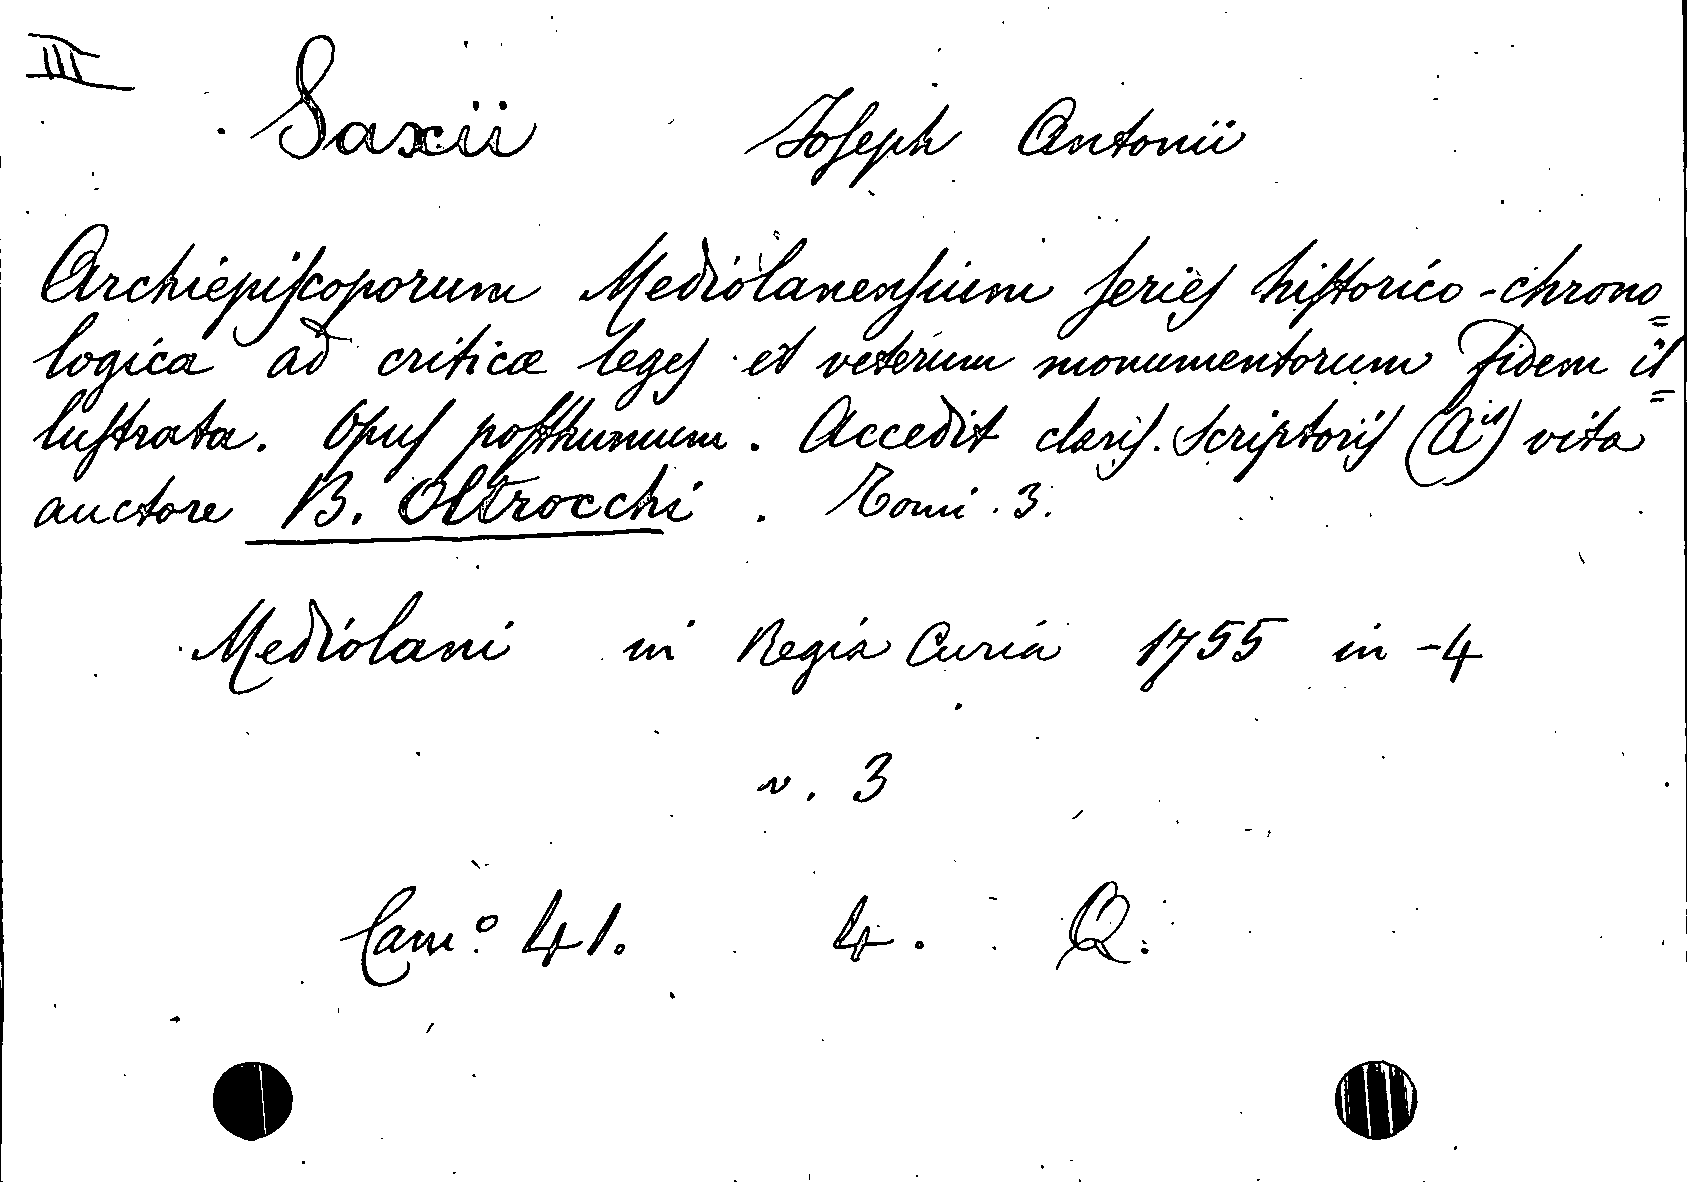 III
Saxii Joseph Antonii
Archiepiscoporum Mediolanensium series historico-chrono=
logica ad criticæ leges et veterum monumentorum fidem il=
lustrata. Opus posthumum. Accedit claris. scriptoris (Aⁱˢ) vita
auctore B. Oltrocchi. Tomi. 3.
Mediolani in Regia Curia 1755 in-4
v. 3
Cam.º 41. 4. Q.